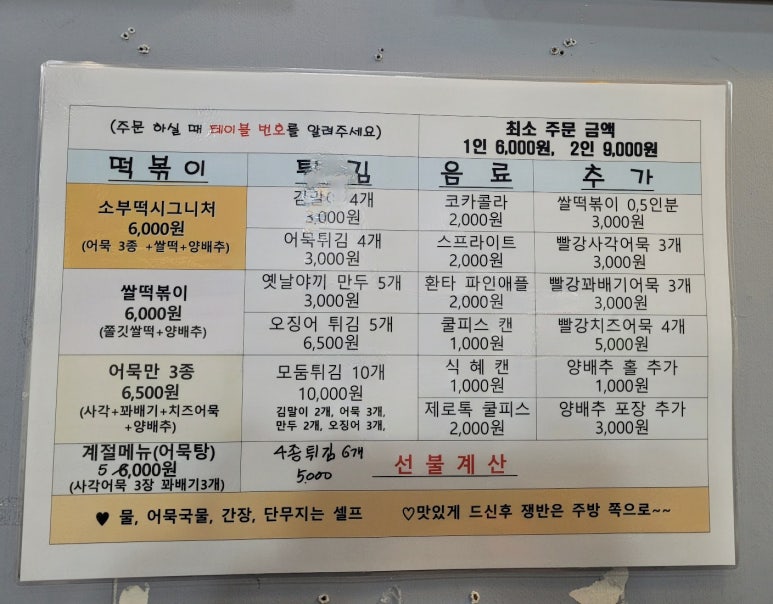 (주문 하실 때 테이블 번호를 알려주세요)
최소 주문 금액
1인 6,000원, 2인 9,000원
떡볶이
튀김
음료
추가
소부떡시그니처
6,000원
(어묵 3종 +쌀떡+양배추)
쌀떡볶이
6,000원
(쫄깃쌀떡+양배추)
어묵만 3종
6,500원
(사각+꽈배기+치즈어묵
+양배추)
계절메뉴(어묵탕)
5 6,000원
(사각어묵 3장 꽈배기3개)
김말이 4개
3,000원
어묵튀김 4개
3,000원
옛날야끼 만두 5개
3,000원
오징어 튀김 5개
6,500원
모둠튀김 10개
10,000원
김말이 2개, 어묵 3개,
만두 2개, 오징어 3개,
4종튀김 6개
5000
코카콜라
2,000원
스프라이트
2,000원
환타 파인애플
2,000원
쿨피스 캔
1,000원
식 혜 캔
1,000원
제로톡 쿨피스
2,000원
쌀떡볶이 0,5인분
3,000원
빨강사각어묵 3개
3,000원
빨강꽈배기어묵 3개
3,000원
빨강치즈어묵 4개
5,000원
양배추 홀 추가
1,000원
양배추 포장 추가
3,000원
선불계산
♥ 물, 어묵국물, 간장, 단무지는 셀프
♡맛있게 드신후 쟁반은 주방 쪽으로~~